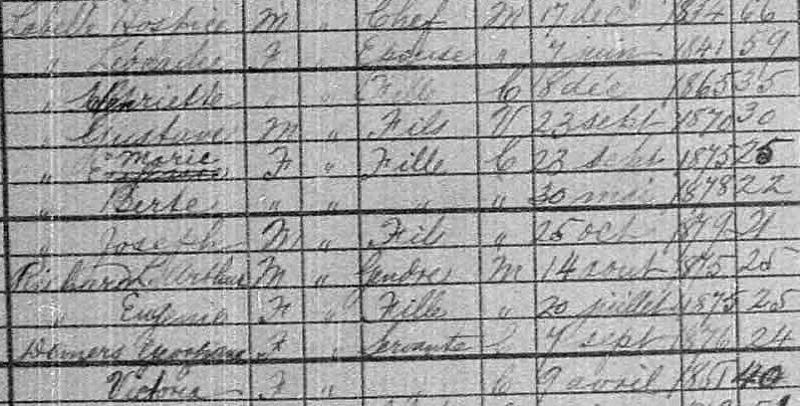 Labelle Hospice M " Chef M 17 dec 1834 66
" Léocadie F " Epouse " 7 juin 1841 59
" " " Fille C 8 déc 1865 35
" Gustave M " Fils V 23 sept 1870 30
" Marie F " Fille C 23 sept 1875 25
" Berthe " " " " 30 mai 1878 22
" Joseph M " Fils " 25 oct 1879 21
Richard Arthur M " Gendre M 14 aout 1875 25
" Eugenie F " Fille " 20 juillet 1875 25
Demers F " Servante C 7 sept 1876 24
Victoria F " C 9 avril 1861 40